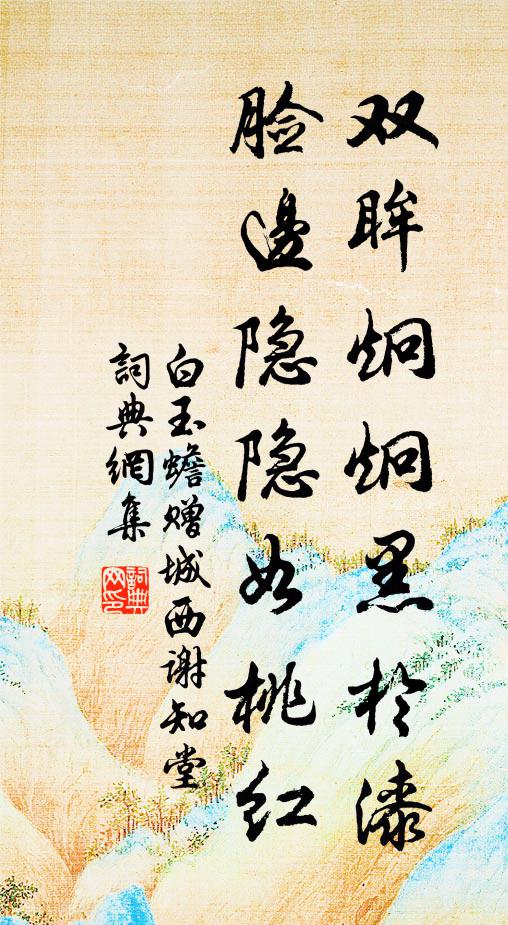 双眸炯炯黑於漆
脸邊隐隐如桃红
白玉蟾赠城西谢知堂
詞典網集
詞典
网印